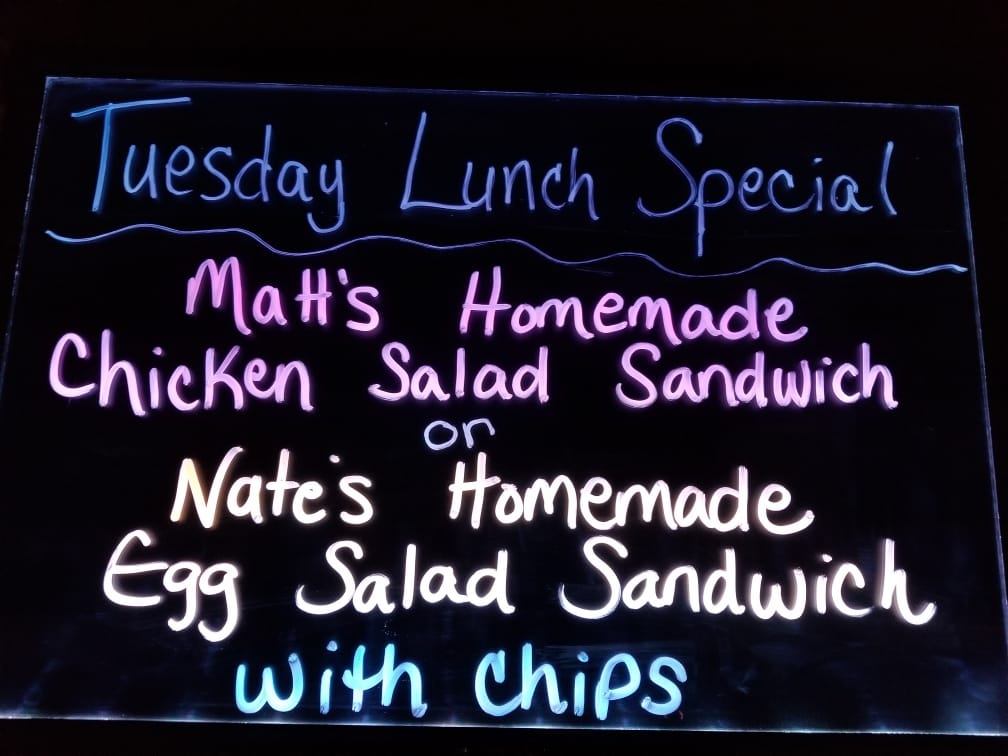 Tuesday Lunch Special
Matt's Homemade
Chicken Salad Sandwich
or
Nate's Homemade
Egg Salad Sandwich
with chips